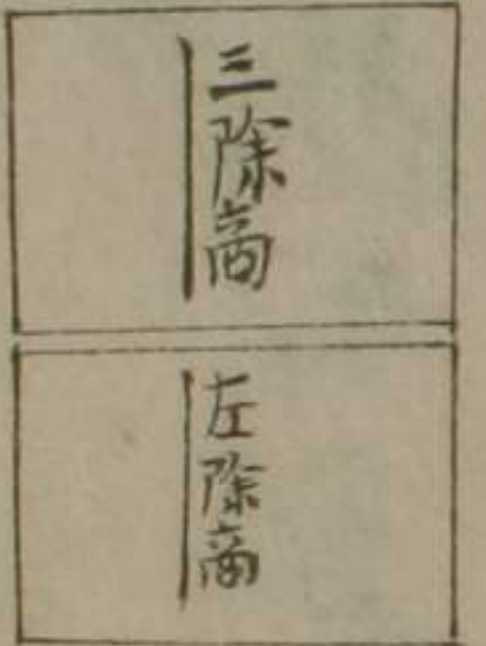 三除商
左除商